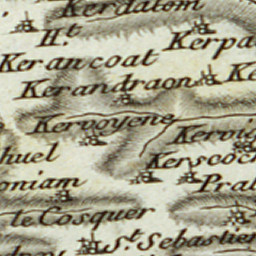 Kerdalom
H.t
Kerpa
Kerancoat
Kerandraon
Ke
Kervoyene
Kervig
huel
Kerscoch
oniam
Pral
le Cosquer
St. Sebastien